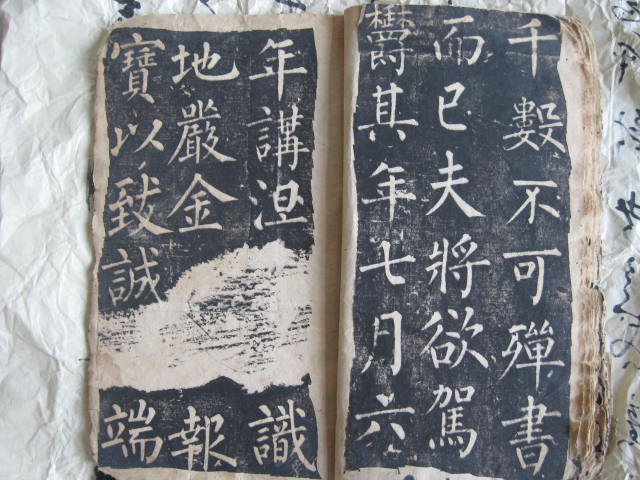 千數不可殫書
而已夫將欲駕
其年七月六
年講涅 識
地嚴金 報
寶以致誠 端